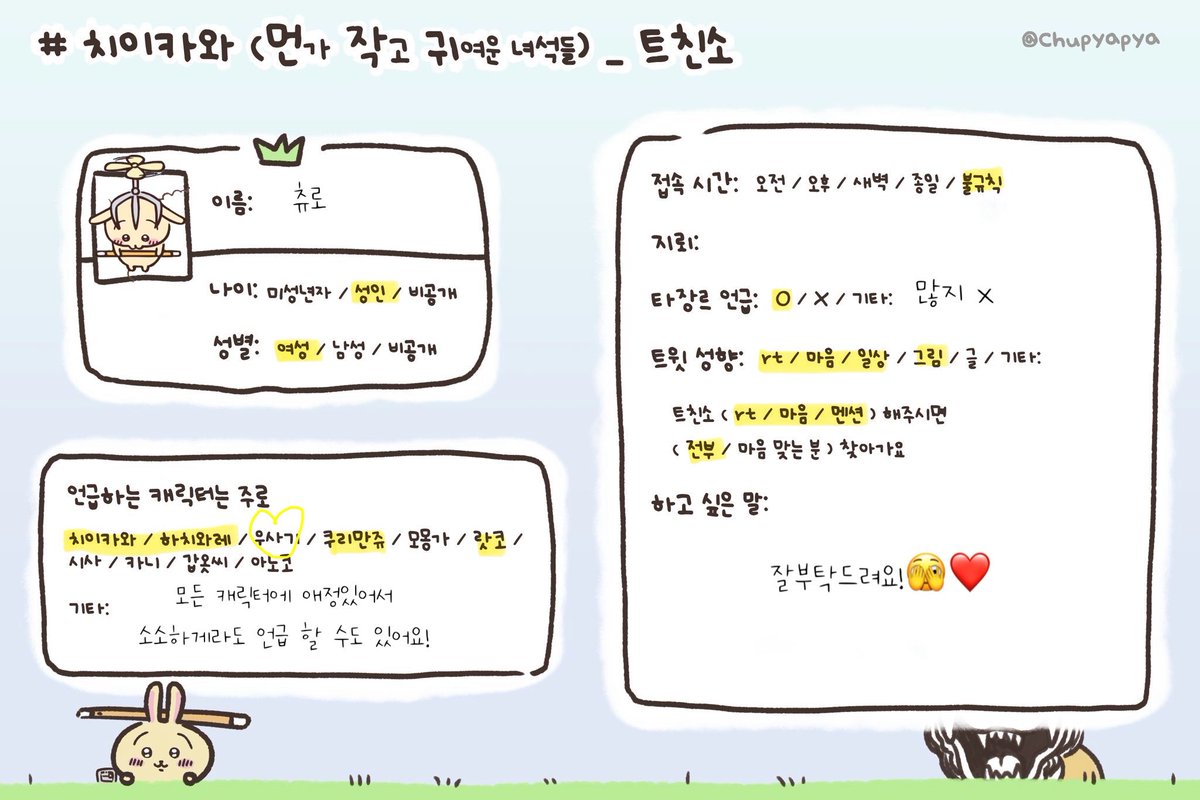 # 치이카와 (먼가 작고 귀여운 녀석들) _ 트친소
@Chupyapya
이름: 츄로
나이: 미성년자 / 성인 / 비공개
성별: 여성 / 남성 / 비공개
언급하는 캐릭터는 주로
치이카와 / 하치와레 / 우사기 / 쿠리만쥬 / 모몽가 / 랏코 /
시사 / 카니 / 갑옷씨 / 아노코
기타: 모든 캐릭터에 애정있어서
소소하게라도 언급 할 수도 있어요!
접속 시간: 오전 / 오후 / 새벽 / 종일 / 불규칙
지뢰:
타장르 언급: O / X / 기타: 많지 X
트윗 성향: rt / 마음 / 일상 / 그림 / 글 / 기타:
트친소 ( rt / 마음 / 멘션 ) 해주시면
( 전부 / 마음 맞는 분 ) 찾아가요
하고 싶은 말:
잘부탁드려요!🫣❤️